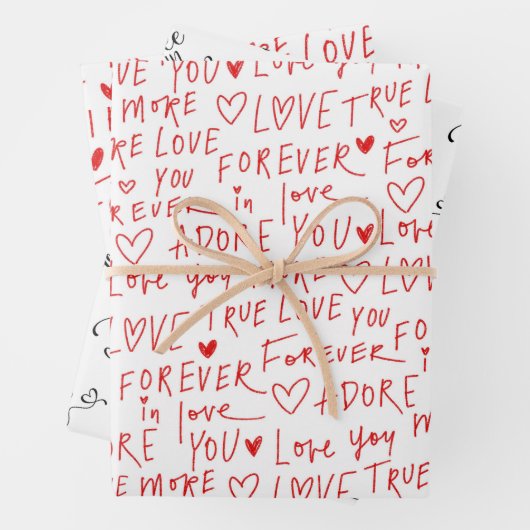 LOVE
OVE YOU Love you
MORE LOVE TRUE
LOVE
YOU FOREVER Forever
FOREVER in love
ADORE YOU Love
Love you LOVE
LOVE TRUE LOVE YOU
FOREVER FOREVER in
in love ADORE
YOU Love you
MORE LOVE TRUE